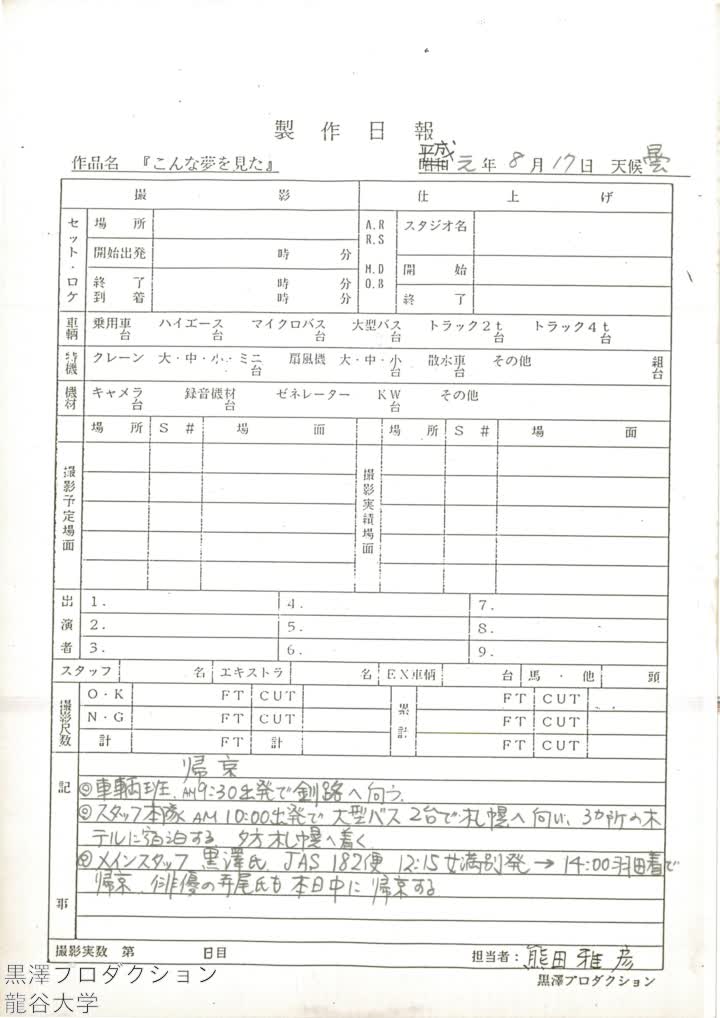 製作日報
作品名 『こんな夢を見た』 平成 昭和 元年 8月 17日 天候 曇
撮影 仕上げ
セット・ロケ 場所 A.R R.S スタジオ名
開始出発 時 分
終了 到着 時 分 時 分 M.D O.B 開始
終了
車輌 乗用車 台 ハイエース 台 マイクロバス 台 大型バス 台 トラック2t 台 トラック4t 台
特機 クレーン 大・中・小・ミニ 台 扇風機 大・中・小 台 散水車 台 その他 組 台
機材 キャメラ 台 録音機材 台 ゼネレーター KW 台 その他
場所 S# 場面 場所 S# 場面
撮影予定場面 撮影実績場面
出演者 1. 4. 7.
2. 5. 8.
3. 6. 9.
スタッフ 名 エキストラ 名 EX車輌 台 馬・他 頭
撮影尺数 O・K FT CUT 累計 FT CUT
N・G FT CUT FT CUT
計 FT 計 FT CUT
記事
帰京
◎車輌班、AM9:30出発で釧路へ向う。
◎スタッフ本隊 AM 10:00出発で大型バス2台で札幌へ向い、3か所のホ
テルに宿泊する 夕方札幌へ着く
◎メインスタッフ 黒澤氏 JAS 182便 12:15女満別発→14:00羽田着で
帰京、俳優の寺尾氏も本日中に帰京する
撮影実数 第 日目 担当者: 熊田雅彦
黒澤プロダクション
黒澤プロダクション
龍谷大学